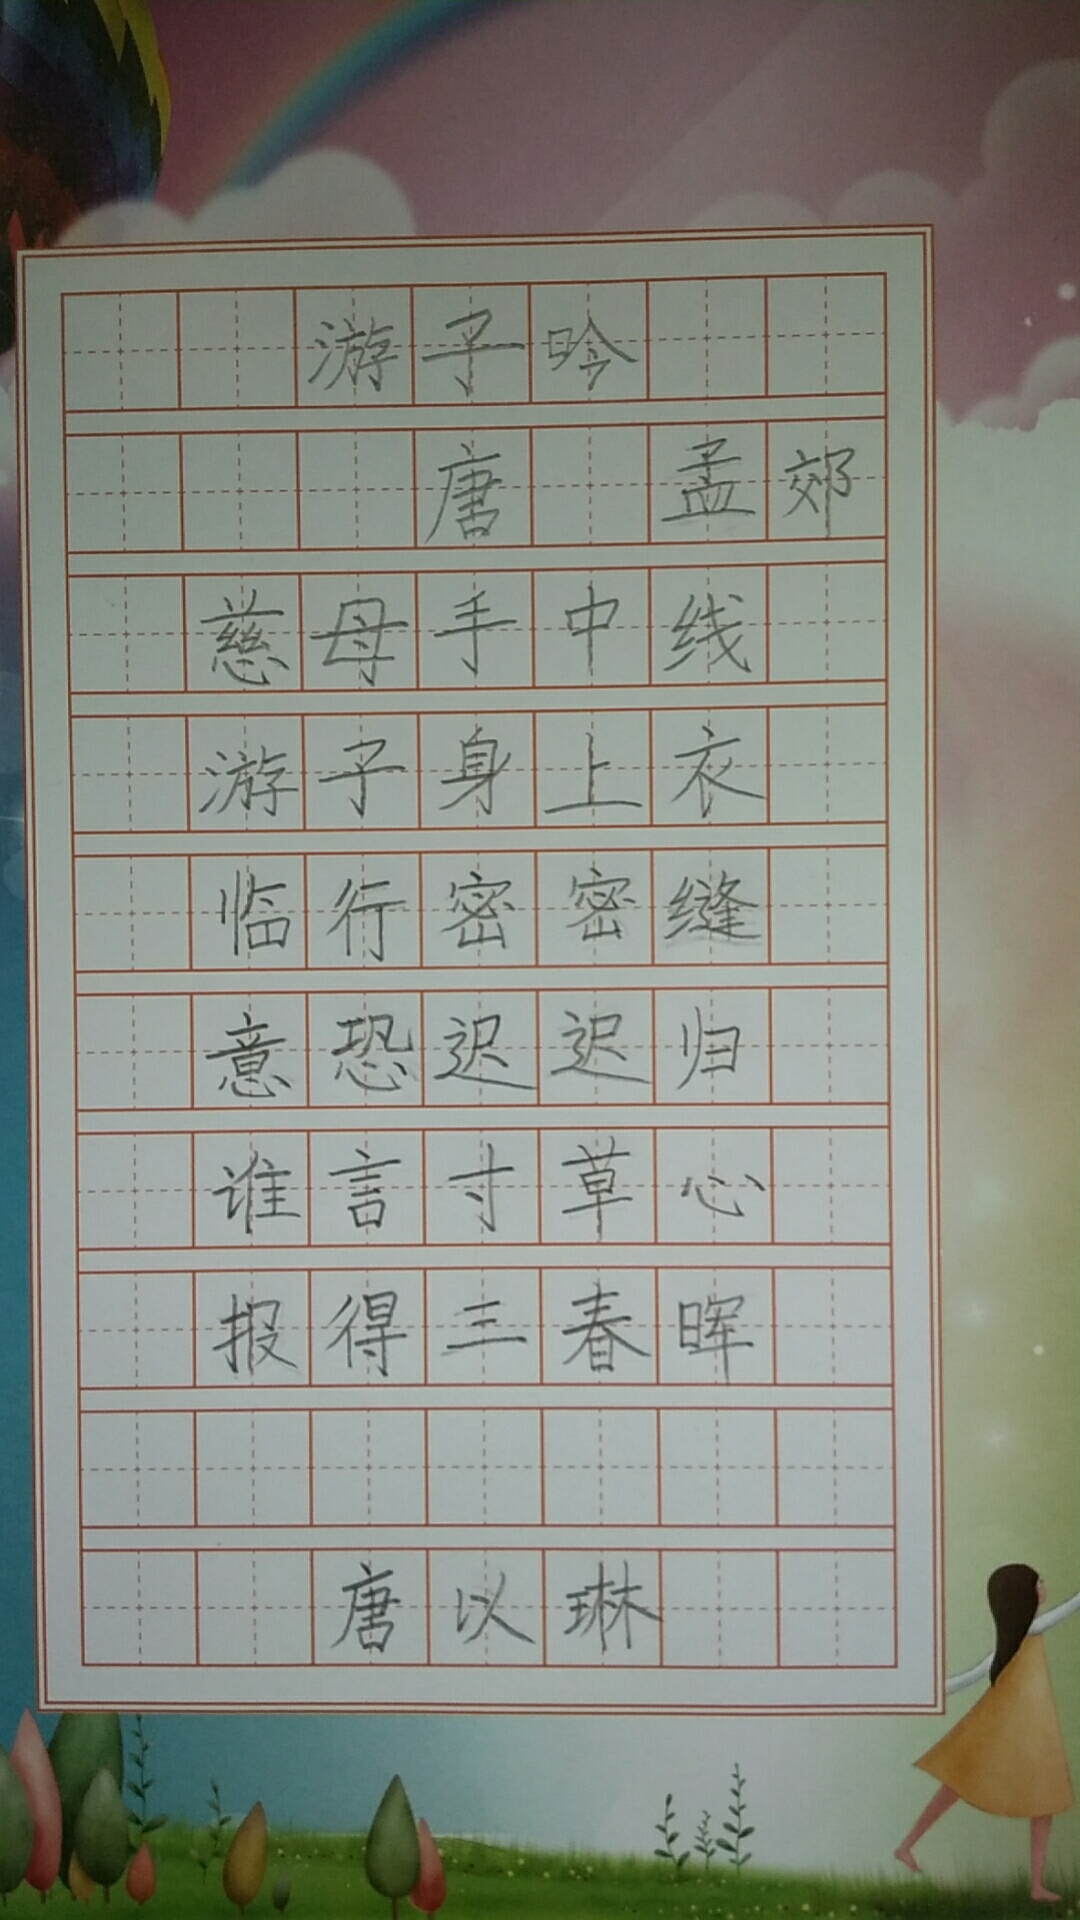 游子吟
唐 孟郊
慈母手中线
游子身上衣
临行密密缝
意恐迟迟归
谁言寸草心
报得三春晖
唐以琳